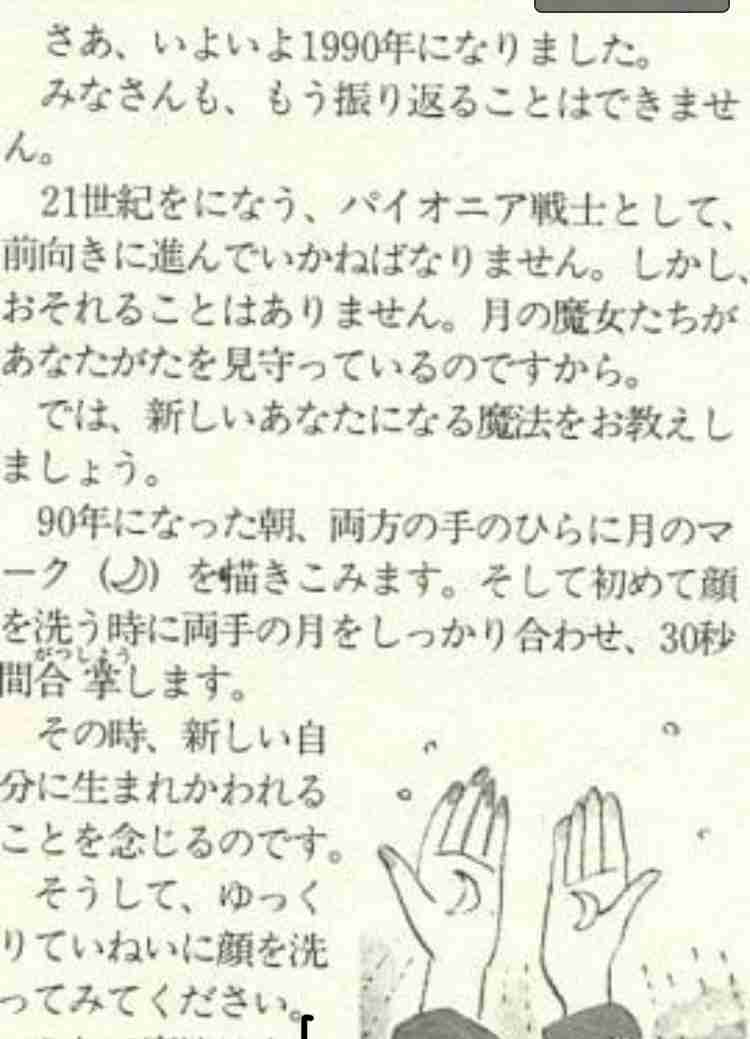 さあ、いよいよ1990年になりました。
みなさんも、もう振り返ることはできませ
ん。
21世紀をになう、パイオニア戦士として、
前向きに進んでいかねばなりません。しかし、
おそれることはありません。月の魔女たちが
あなたがたを見守っているのですから。
では、新しいあなたになる魔法をお教えし
ましょう。
90年になった朝、両方の手のひらに月のマ
ーク（☽）を描きこみます。そして初めて顔
を洗う時に両手の月をしっかり合わせ、30秒
がっしょう
間合掌します。
その時、新しい自
分に生まれかわれる
ことを念じるのです。
そうして、ゆっく
りていねいに顔を洗
ってみてください。